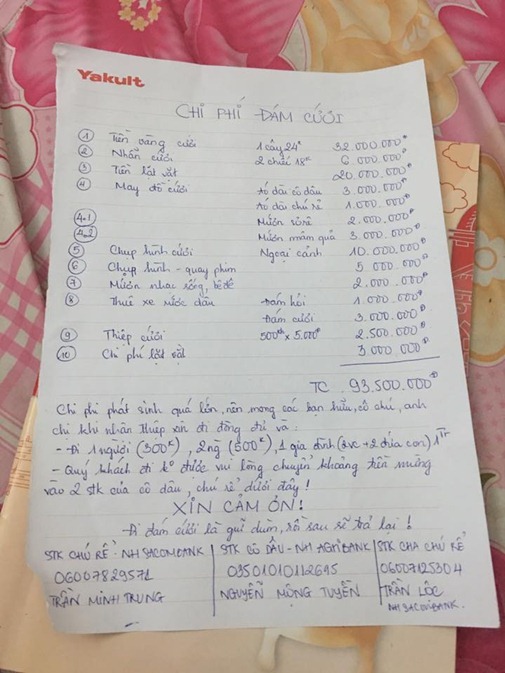 Yakult
CHI PHÍ ĐÁM CƯỚI
① Tiền vàng cưới 1 cây 24k 32.000.000đ
② Nhẫn cưới 2 chiếc 18k 6.000.000đ
③ Tiền lặt vặt 20.000.000đ
④ May đồ cưới Áo dài cô dâu 3.000.000đ
Áo dài chú rể 1.000.000đ
4.1 Mướn soirê 2.000.000đ
4.2 Mướn mâm quả 3.000.000đ
⑤ Chụp hình cưới Ngoại cảnh 10.000.000đ
⑥ Chụp hình - quay phim 5.000.000đ
⑦ Mướn nhạc sống, hề 2.000.000đ
⑧ Thuê xe rước dâu Đám hỏi 1.000.000đ
Đám cưới 3.000.000đ
⑨ Thiệp cưới 500th x 5.000đ 2.500.000đ
⑩ Chi phí lặt vặt 3.000.000đ
TC 93.500.000đ
Chi phí phát sinh quá lớn, nên mong các bạn hữu, cô chú, anh
chị khi nhận thiệp xin đi đông đủ và:
- Đi 1 người (300k), 2ng (500k), 1 gia đình (2vc + 2 đứa con) 1Tr
- Quý khách đi ko được vui lòng chuyển khoảng tiền mừng
vào 2 stk của cô dâu, chú rể dưới đây!
XIN CẢM ƠN!
Đi đám cưới là gửi dùm, rồi sau sẽ trả lại!
STK CHÚ RỂ: NH SACOMBANK STK CÔ DÂU - NH AGRIBANK STK CHA CHÚ RỂ
06007829571 0350101012695 06007125304
TRẦN MINH TRUNG NGUYỄN MỘNG TUYỀN TRẦN LỘC
NH SACOMBANK.